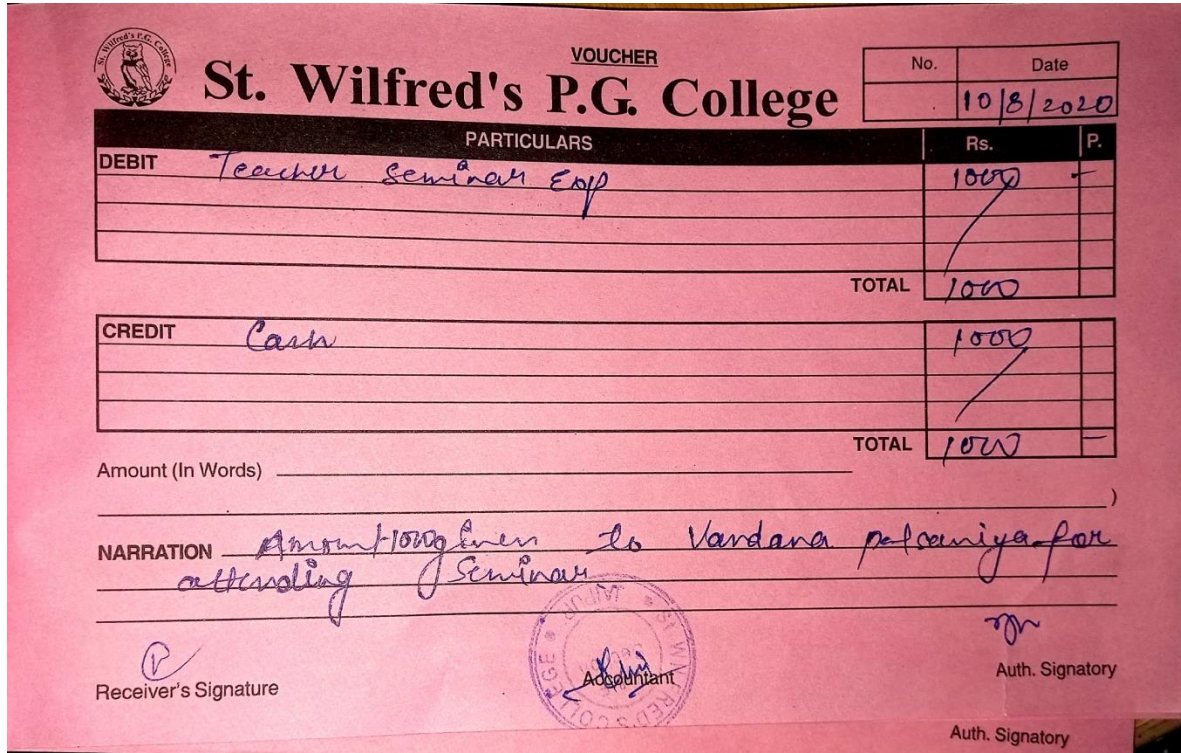 St. Wilfred's P.G. College
VOUCHER
St. Wilfred's P.G. College
No. Date
10/8/2020
PARTICULARS Rs. P.
DEBIT Teacher Seminar Exp 1000 -
TOTAL 1000
CREDIT Cash 1000
TOTAL 1000 -
Amount (In Words)
)
NARRATION Amount 1000 given to Vandana palsaniya for
attending Seminar
ST. WILFRED'S COLLEGE * JAIPUR *
Receiver's Signature
Accountant
Auth. Signatory
Auth. Signatory